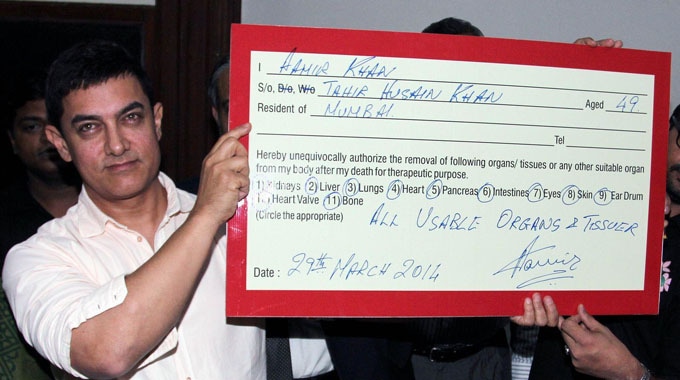 I AAMIR KHAN
S/o, D/o, W/o TAHIR HUSAIN KHAN Aged 49.
Resident of MUMBAI.
Tel
Hereby unequivocally authorize the removal of following organs/ tissues or any other suitable organ
from my body after my death for therapeutic purpose.
1) Kidnays 2) Liver 3) Lungs 4) Heart 5) Pancreas 6) Intestines 7) Eyes 8) Skin 9) Ear Drum
Heart Valve 11) Bone
(Circle the appropriate) ALL USABLE ORGANS & TISSUES
Date : 29th MARCH 2014 Aamir